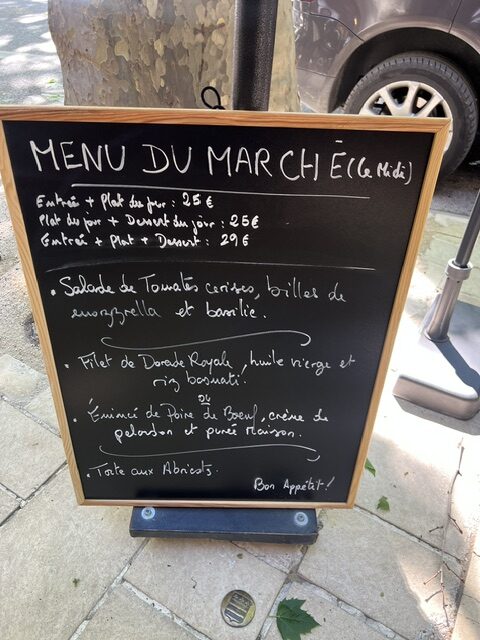 MENU DU MARCHÉ (Le Midi)
Entrée + Plat du jour : 25€
Plat du jour + Dessert du jour : 25€
Entrée + Plat + Dessert : 29€
• Salade de Tomates cerises, billes de
mozzrella et basilic.
• Filet de Dorade Royale, huile vierge et
riz basmati.
ou
• Émincé de Poire de Boeuf, crème de
pelardon et purée Maison.
• Tarte aux Abricots.
Bon Appétit!